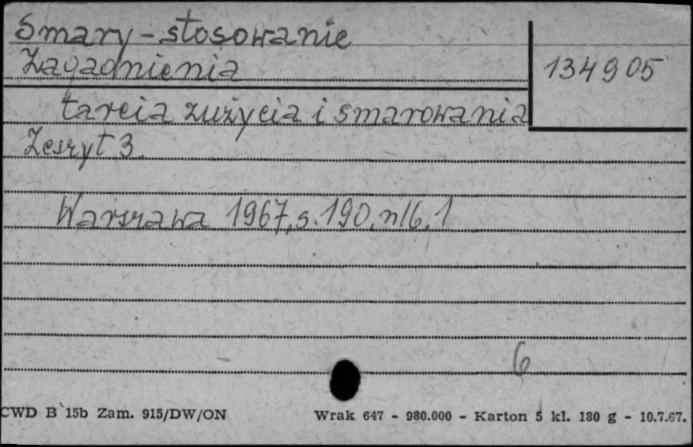 Smary - stosowanie
Zagadnienia
134905
tarcia zużycia i smarowania
Zeszyt 3.
Warszawa 1967, s. 190, nlb, 1
6
CWD B 15b Zam. 915/DW/ON
Wrak 647 - 980.000 - Karton 5 kl. 180 g - 10.7.67.